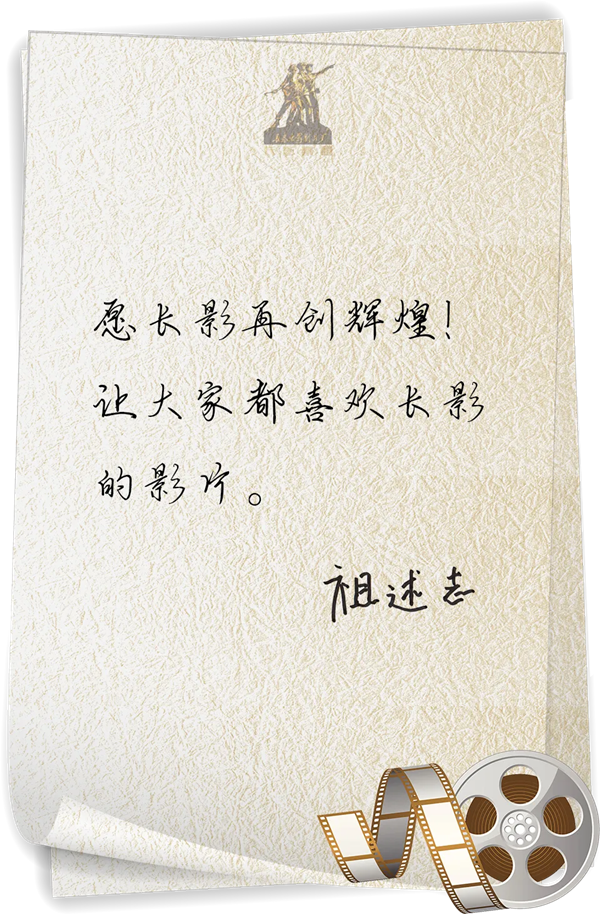 愿长影再创辉煌！
让大家都喜欢长影
的影片。
祖述志